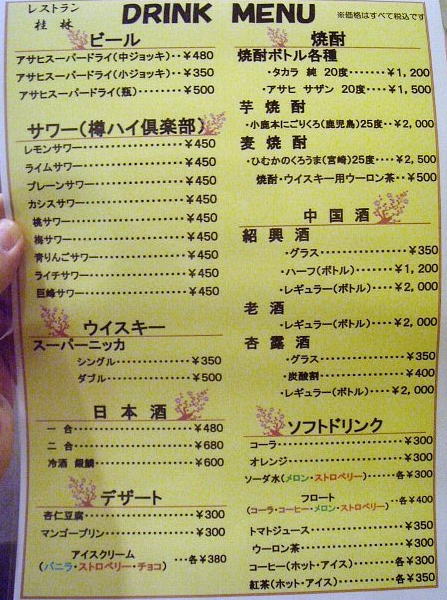 レストラン
桂林
DRINK MENU
※価格はすべて税込です
ビール
アサヒスーパードライ(中ジョッキ)‥¥480
アサヒスーパードライ(小ジョッキ)‥¥350
アサヒスーパードライ(瓶)‥‥‥¥500
サワー(樽ハイ倶楽部)
レモンサワー‥‥‥¥450
ライムサワー‥‥‥¥450
プレーンサワー‥‥‥¥450
カシスサワー‥‥‥¥450
桃サワー‥‥‥¥450
梅サワー‥‥‥¥450
青りんごサワー‥‥‥¥450
ライチサワー‥‥‥¥450
巨峰サワー‥‥‥¥450
ウイスキー
スーパーニッカ
シングル‥‥‥¥350
ダブル‥‥‥¥500
日本酒
一合‥‥‥¥480
二合‥‥‥¥680
冷酒 銀鱗‥‥‥¥600
デザート
杏仁豆腐‥‥‥¥300
マンゴープリン‥‥‥¥300
アイスクリーム
(バニラ・ストロベリー・チョコ)‥各¥380
焼酎
焼酎ボトル各種
・タカラ 純 20度‥‥¥1,200
・アサヒ サザン 20度‥‥¥1,500
芋焼酎
・小鹿本にごりくろ(鹿児島)25度‥¥2,000
麦焼酎
・ひむかのくろうま(宮崎)25度‥‥¥2,500
焼酎・ウイスキー用ウーロン茶‥¥500
中国酒
紹興酒
・グラス‥‥‥¥350
・ハーフ(ボトル)‥‥¥1,200
・レギュラー(ボトル)‥‥¥2,000
老酒
・レギュラー(ボトル)‥‥¥2,000
杏露酒
・グラス‥‥‥¥350
・炭酸割‥‥‥¥400
・レギュラー(ボトル)‥‥¥2,000
ソフトドリンク
コーラ‥‥‥¥300
オレンジ‥‥‥¥300
ソーダ水(メロン・ストロベリー)‥‥各¥300
フロート
(コーラ・コーヒー・メロン・ストロベリー)‥各¥400
トマトジュース‥‥‥¥350
ウーロン茶‥‥‥¥300
コーヒー(ホット・アイス)‥‥‥¥300
紅茶(ホット・アイス)‥‥‥¥350